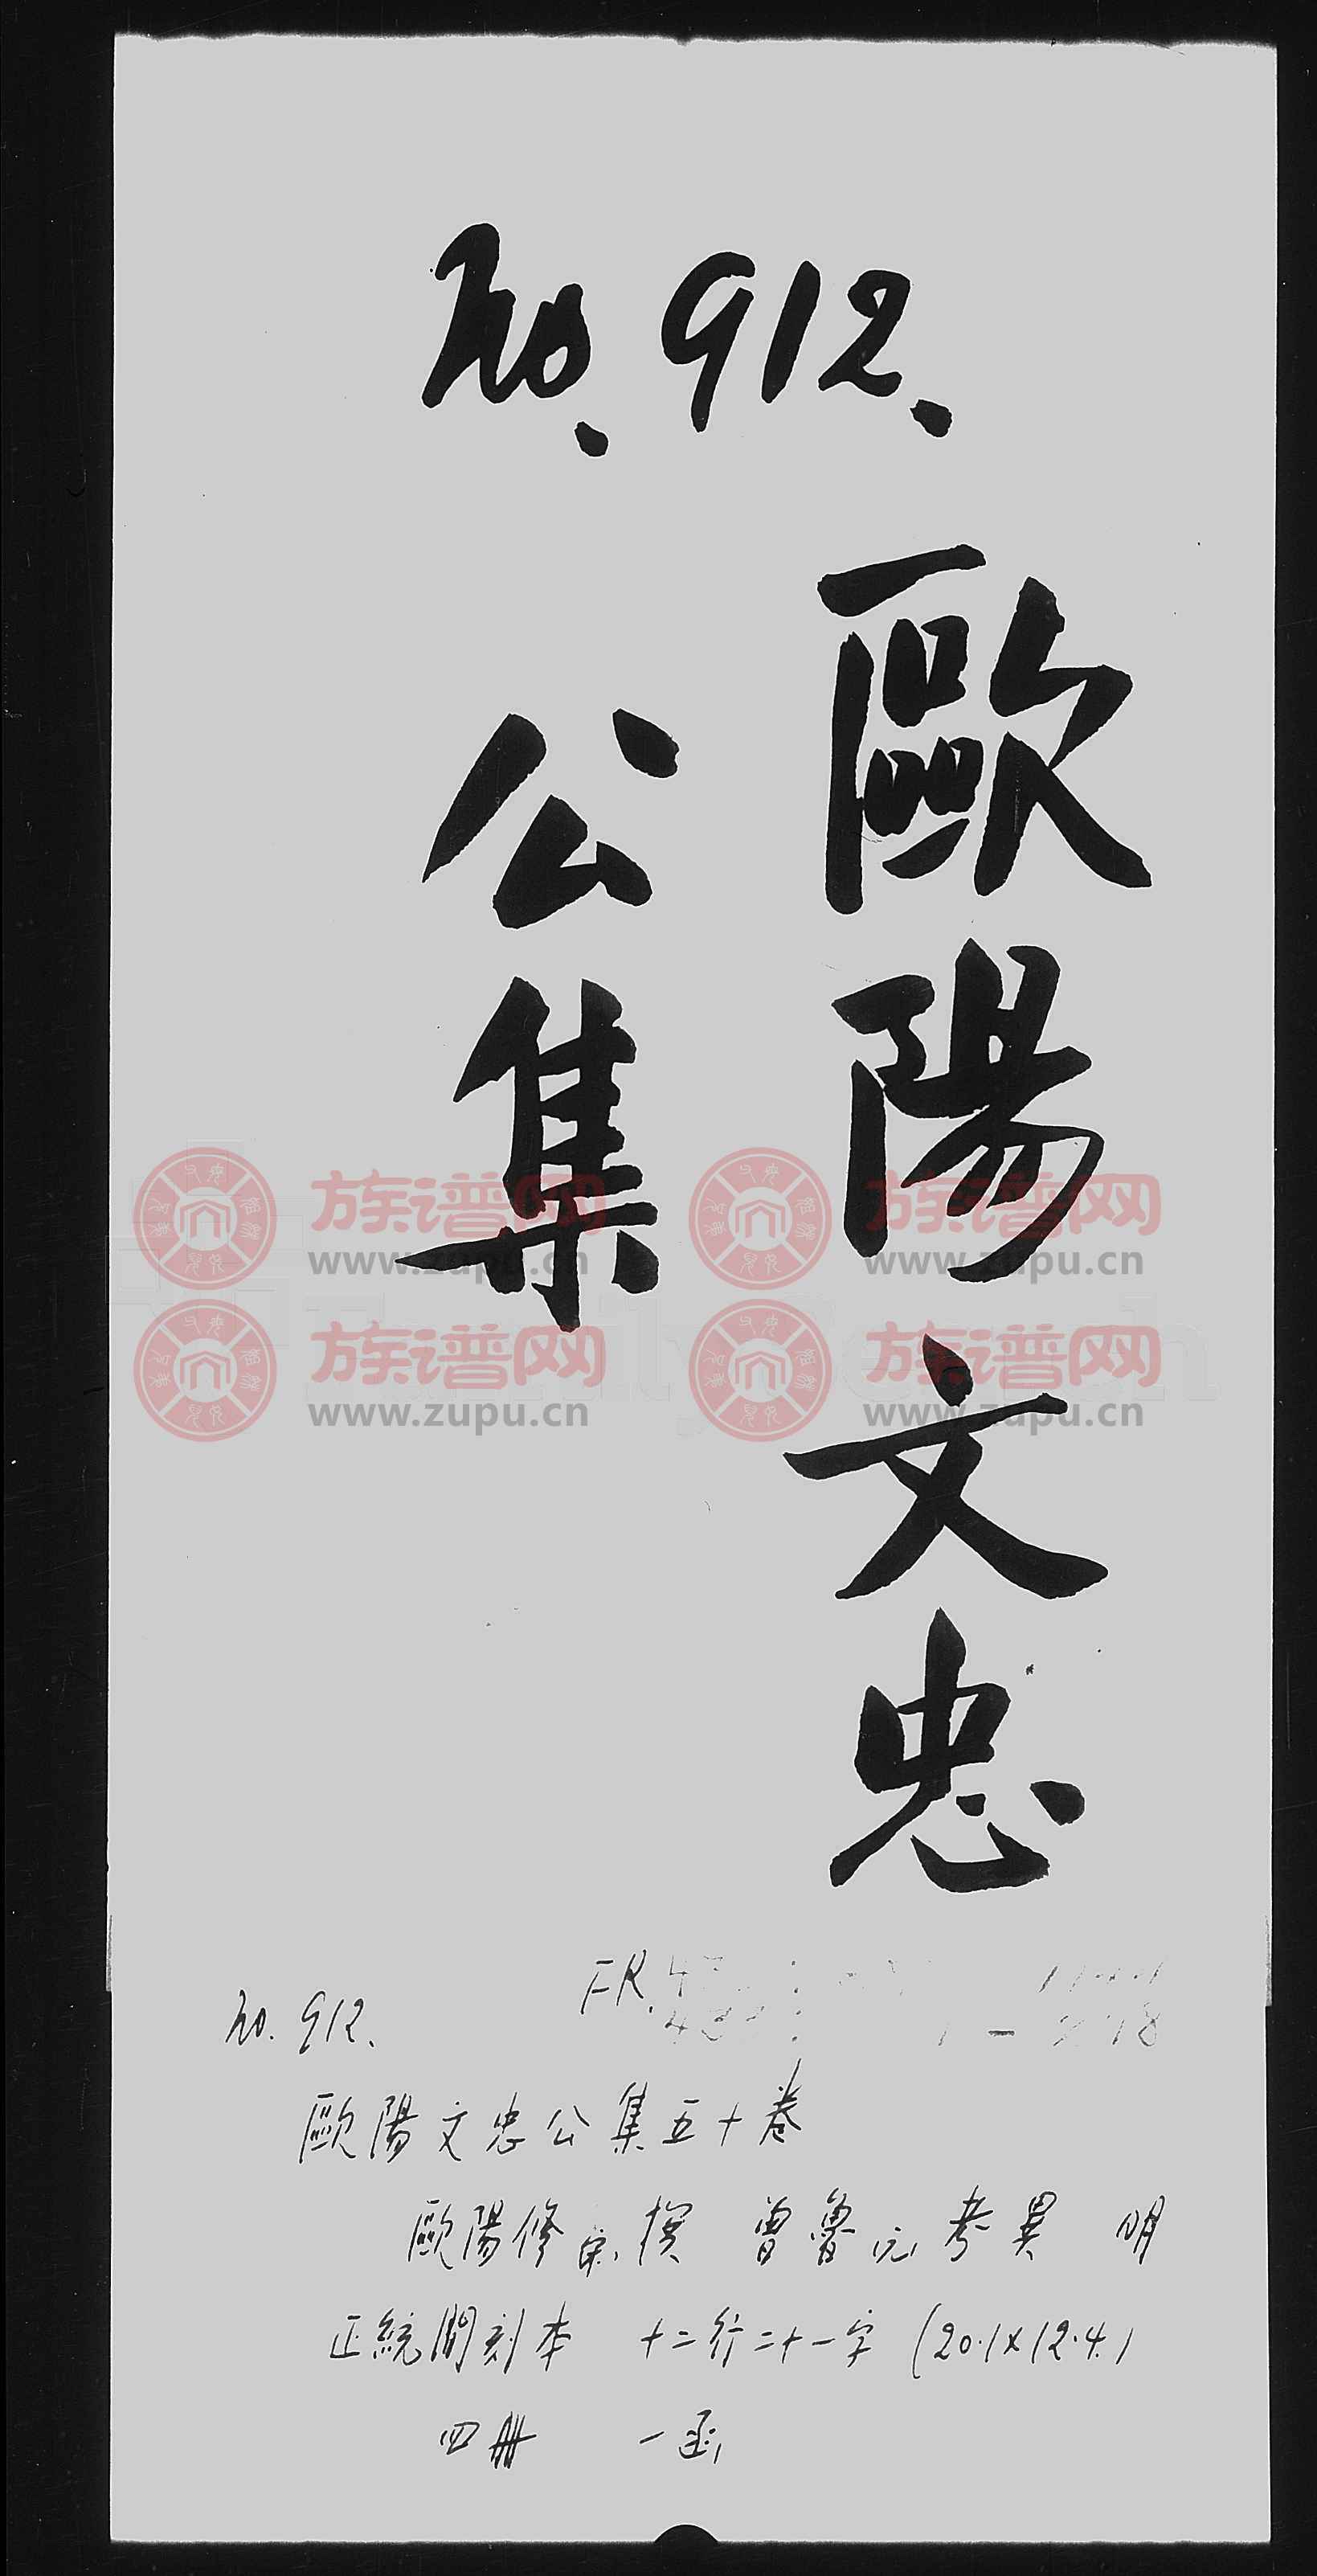 no. 912.
歐陽文忠
公集
族谱网 族谱网
www.zupu.cn www.zupu.cn
族谱网 族谱网
www.zupu.cn www.zupu.cn
FR. 4
no. 912.
歐陽文忠公集五十卷
歐陽修 宋 撰 曾魯 元 考異 明
正統間刻本 十二行二十一字 (20.1×12.4.)
四冊 一函